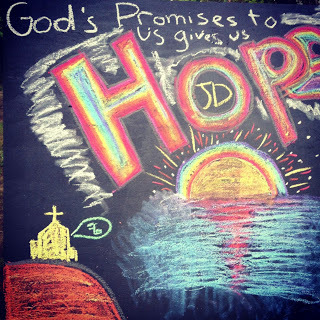 God's Promises to
us gives us
HOPE
JD